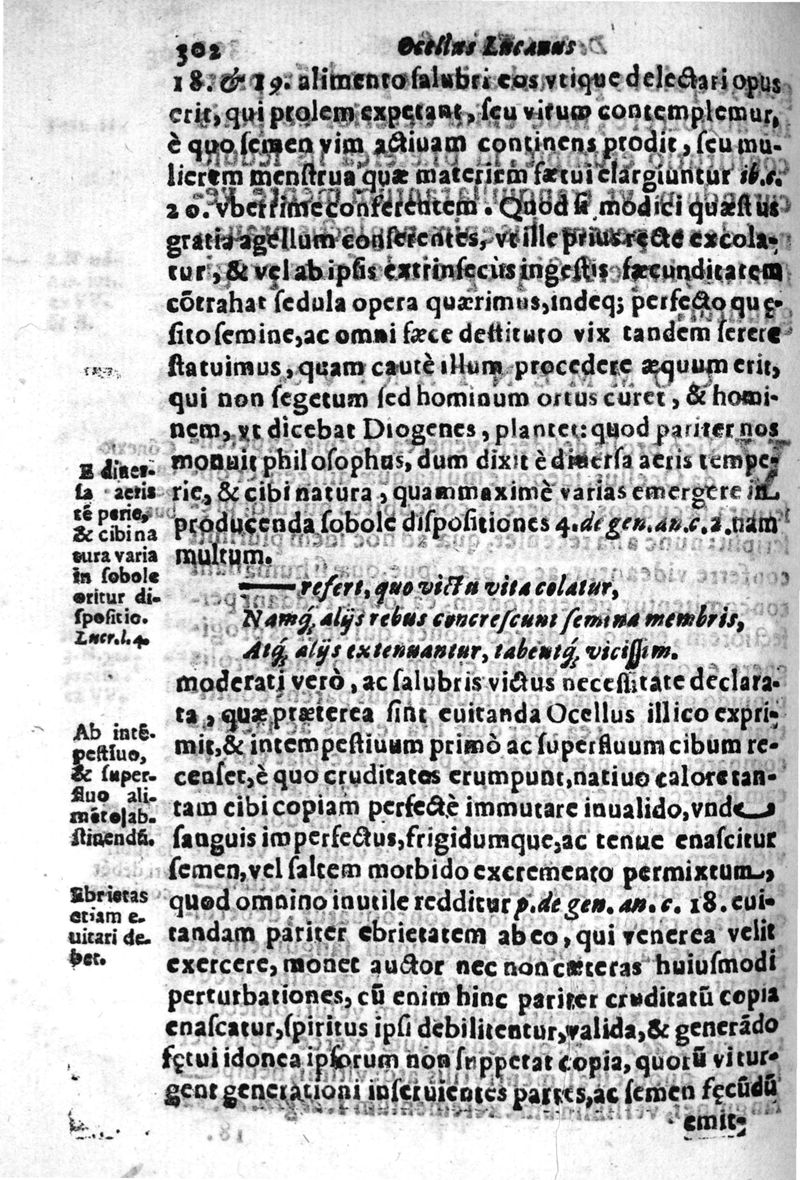 302 Ocellus Lucanus
18. & 19. alimento salubri eos vtique delectari opus
erit, qui prolem expetant, seu virum contemplemur,
è quo semen vim actiuam continens prodit, seu mu-
lierem menstrua quæ materiem fætui elargiuntur ib.c.
20. vberrime conferentem. Quod si modici quæstus
gratia agellum conserentes, vt ille prius rectè excola-
tur, & vel ab ipsis extrinsecùs ingestis fæcunditatem
cõtrahat sedula opera quærimus, indeq; perfecto quę-
sito semine, ac omni fæce destituto vix tandem serere
statuimus, quam cautè illum procedere æquum erit,
qui non segetum sed hominum ortus curet, & homi-
nem, vt dicebat Diogenes, plantet: quod pariter nos
monuit philosophus, dum dixit è diuersa aeris tempe-
rie, & cibi natura, quammaximè varias emergere in
producenda sobole dispositiones 4. de gen. an. c. 2. nam
multum.
refert, quo victu vita colatur,
Namq; alijs rebus concrescunt semina membris,
Atq; alijs extenuantur, tabentq; vicissim.
moderati verò, ac salubris victus necessitate declara-
ta, quæ præterea sint euitanda Ocellus illico expri-
mit, & intempestiuum primò ac superfluum cibum re-
censet, è quo cruditates erumpunt, natiuo calore tan-
tam cibi copiam perfectè immutare inualido, vnde
sanguis imperfectus, frigidumque, ac tenue enascitur
semen, vel saltem morbido excremento permixtum,
quod omnino inutile redditur p. de gen. an. c. 18. eui-
tandam pariter ebrietatem ab eo, qui venerea velit
exercere, monet auctor nec non cæteras huiusmodi
perturbationes, cũ enim hinc pariter cruditatũ copia
enascatur, spiritus ipsi debilitentur, valida, & generãdo
fętui idonea ipsorum non suppetat copia, quorũ vi tur-
gent generationi inseruientes partes, ac semen fęcũdũ
emit-
E diuer-
sa aeris
tẽ perie,
& cibi na
tura varia
in sobole
oritur di-
spositio.
Lucr.l.4.
Ab intẽ-
pestiuo,
& super-
fluo ali-
mẽto ab-
stinendũ.
Ebrietas
etiam e-
uitari de-
bet.